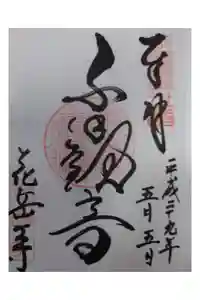 奉拝
平成二十九年
五月五日
千手観音
花岳寺